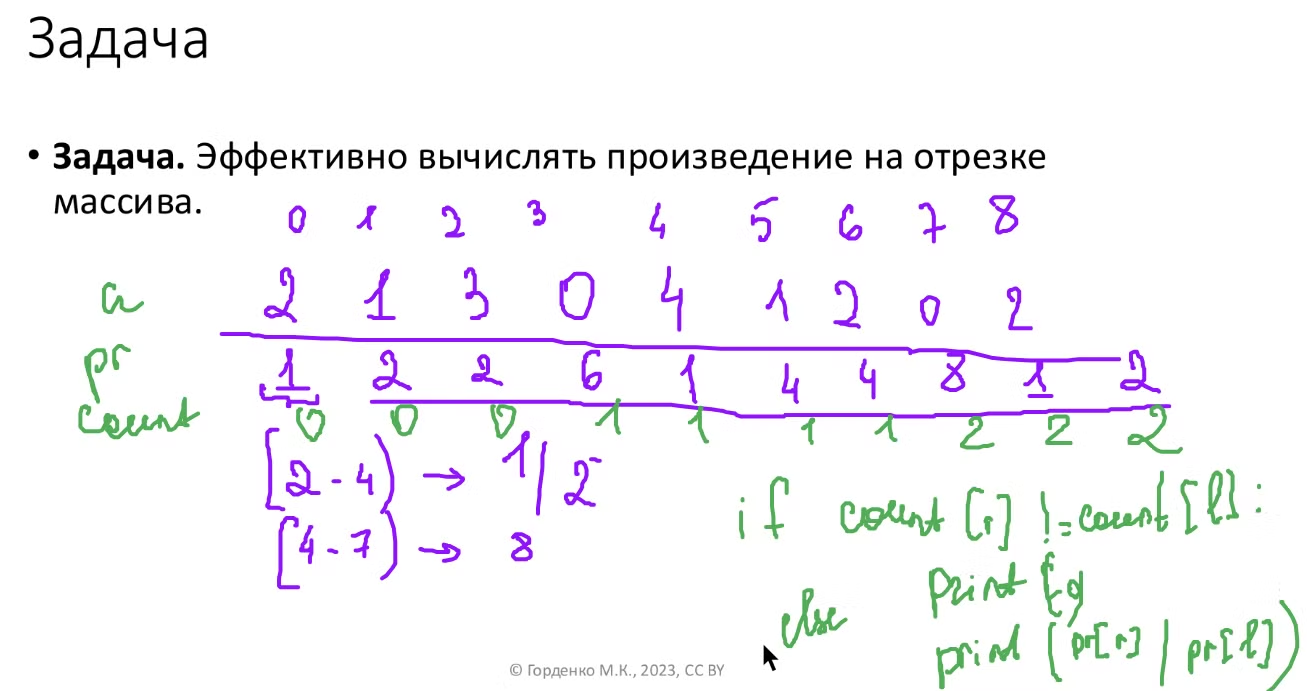 Задача
• Задача. Эффективно вычислять произведение на отрезке
массива.
0 1 2 3 4 5 6 7 8
a 2 1 3 0 4 1 2 0 2
pr 1 2 2 6 1 4 4 8 1 2
count 0 0 0 1 1 1 1 2 2 2
[2-4) → 1/2
[4-7) → 8
if count[r] != count[l]:
print
else
print (pr[r] / pr[l])
© Горденко М.К., 2023, CC BY